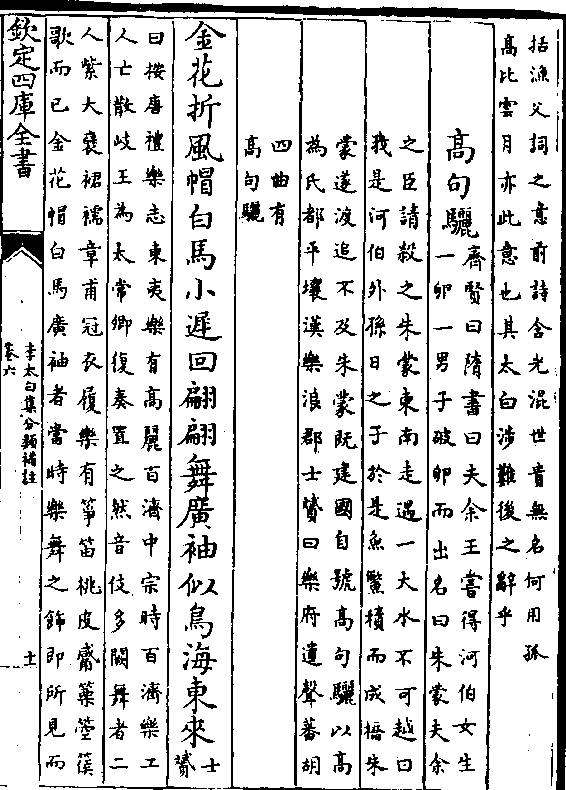 括漁父詞之意前詩含光混世貴無名何用孤
高比雲月亦此意也其太白涉難後之辭乎
高句驪
齊賢曰隋書曰夫余王嘗得河伯女生
一卵一男子破卵而出名曰朱蒙夫余
之臣請殺之朱蒙東南走遇一大水不可越曰
我是河伯外孫日之子於是魚鱉積而成橋朱
蒙遂渡追不及朱蒙既建國自號高句驪以高
為氏都平壤漢樂浪郡士贇曰樂府遺聲蕃胡
四曲有
高句驪
金花折風帽白馬小遲回翩翩舞廣袖似鳥海東來
士贇
曰按唐禮樂志東夷樂有高麗百濟中宗時百濟樂工
人亡散岐王為太常卿復奏置之然音伎多闕舞者二
人紫大袖裙襦章甫冠衣履樂有箏笛桃皮觱篥箜篌
歌而已金花帽白馬廣袖者當時樂舞之飾即所見而
欽定四庫全書
李太白集分類補註
卷六
十一